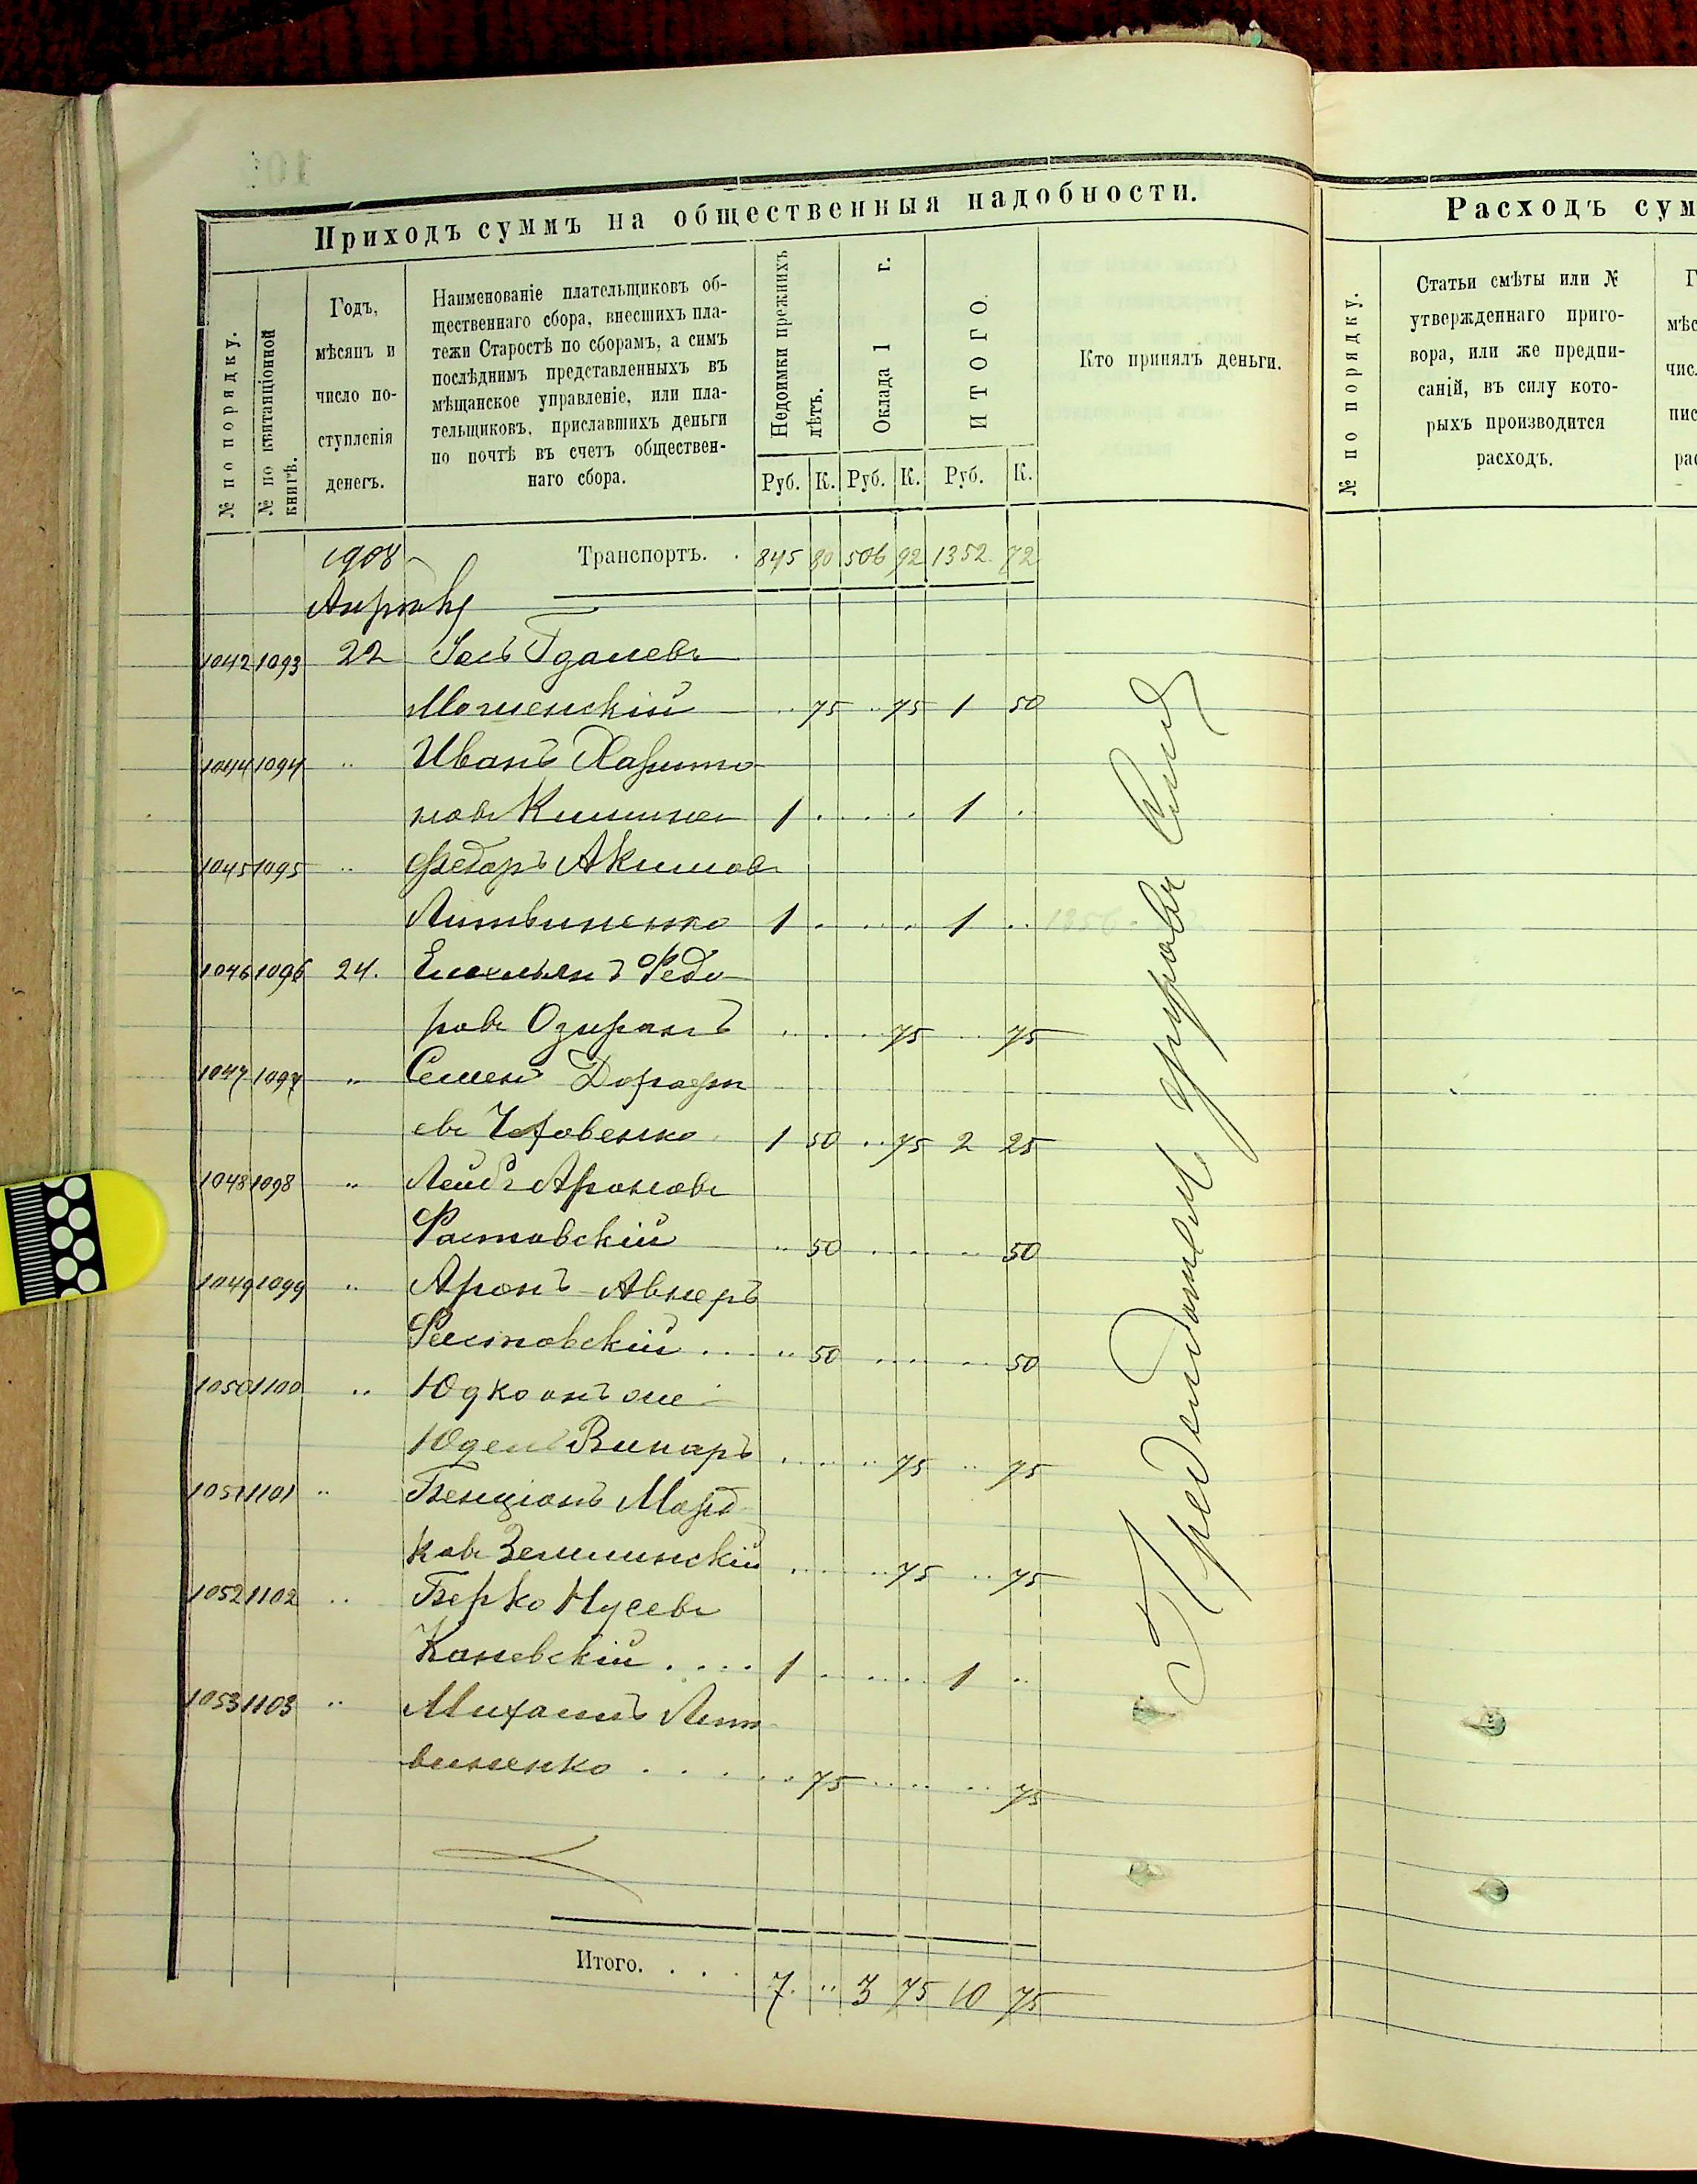 Приходъ суммъ на общественныя надобности.
№ по порядку.
№ по квитанціонной книгѣ.
Годъ,
мѣсяцъ и
число по-
ступленія
денегъ.
Наименованіе плательщиковъ об-
щественнаго сбора, внесшихъ пла-
тежи Старостѣ по сборамъ, а симъ
послѣднимъ представленныхъ въ
мѣщанское управленіе, или пла-
тельщиковъ, приславшихъ деньги
по почтѣ въ счетъ обществен-
наго сбора.
Недоимки прежнихъ лѣтъ.
Оклада 1 г.
ИТОГО.
Кто принялъ деньги.
Руб. К. Руб. К. Руб. К.
1908
Транспортъ. . 845 80 506 92 1352 72
Апрѣль
1042 1093 22 Гдалевъ
75 75 1 50
1044 1094 " Иванъ Харито-
новъ 1 1
1045 1095 " Федоръ Акимовъ
Литвиненко 1 1
1046 1096 24. Емельянъ Федо-
ровъ 75 75
1047 1097 " Семенъ Дорофе
евъ 1 50 75 2 25
1048 1098 " Лейбъ Ароновъ
Ростовскій 50 50
1049 1099 " Аронъ Авнеръ
Ростовскій 50 50
1050 1100 " Юдко онъ же
Юдель Винаръ 75 75
1051 1101 " Бенціонъ Морд
ковъ 75 75
1052 1102 " Берко Нусевъ
Каневскій 1 1
1053 1103 " Михаилъ Лит
виненко 75 75
Итого. . . . 7 " 3 75 10 75
Расходъ сум
№ по порядку.
Статьи смѣты или №
утвержденнаго приго-
вора, или же предпи-
саній, въ силу кото-
рыхъ производится
расходъ.
Г
мѣс
чис
пис
рас